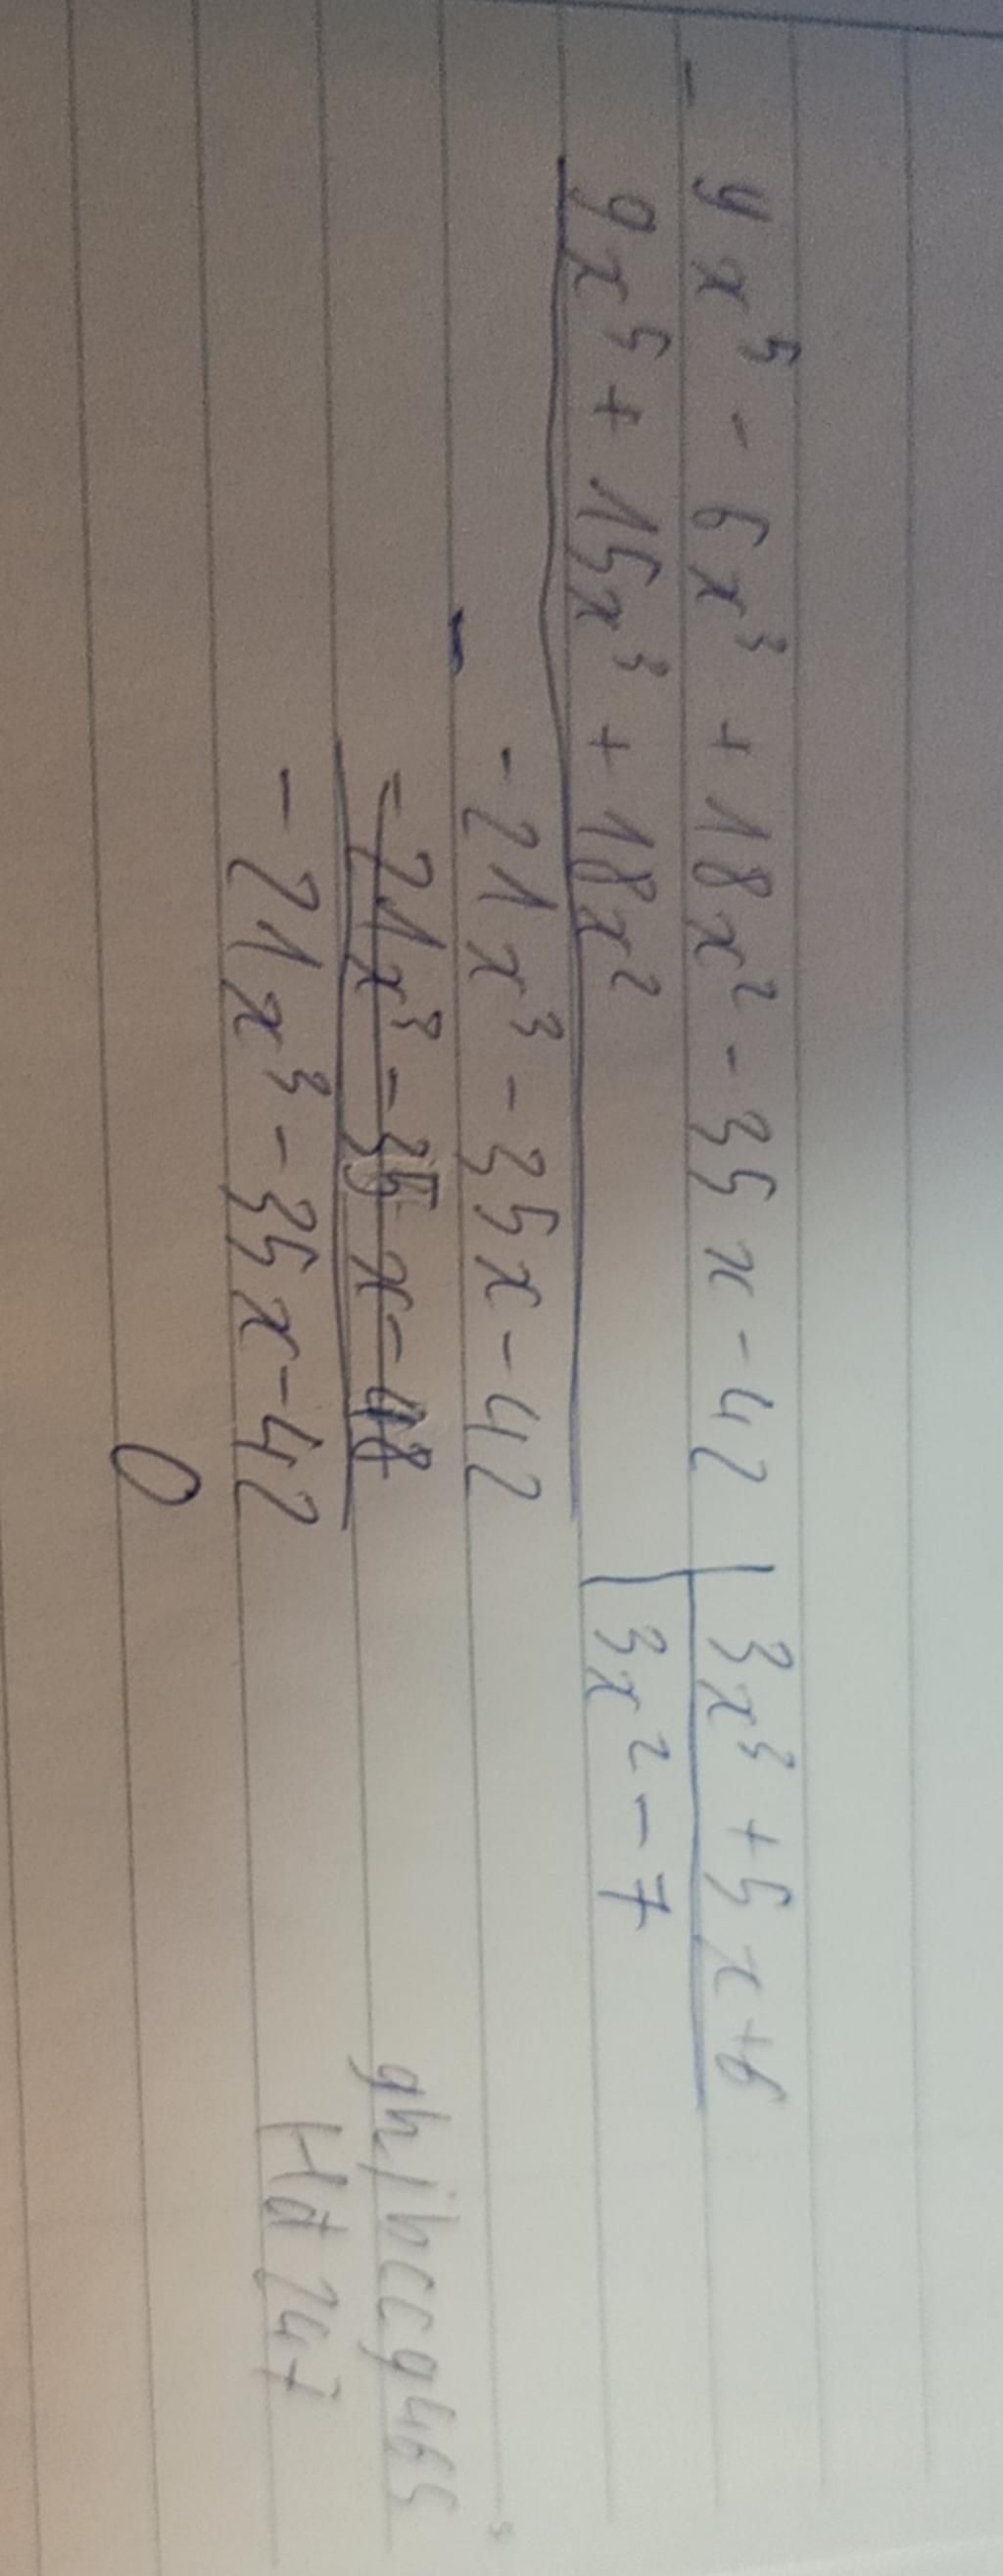 - 9x⁵ - 6x³ + 18x² - 35x - 42 | 3x³ + 5x + 6
9x⁵ + 15x³ + 18x² | 3x² - 7
- - 21x³ - 35x - 42
- 21x³ - 35x - 48
- 21x³ - 35x - 42
0
Hd 247